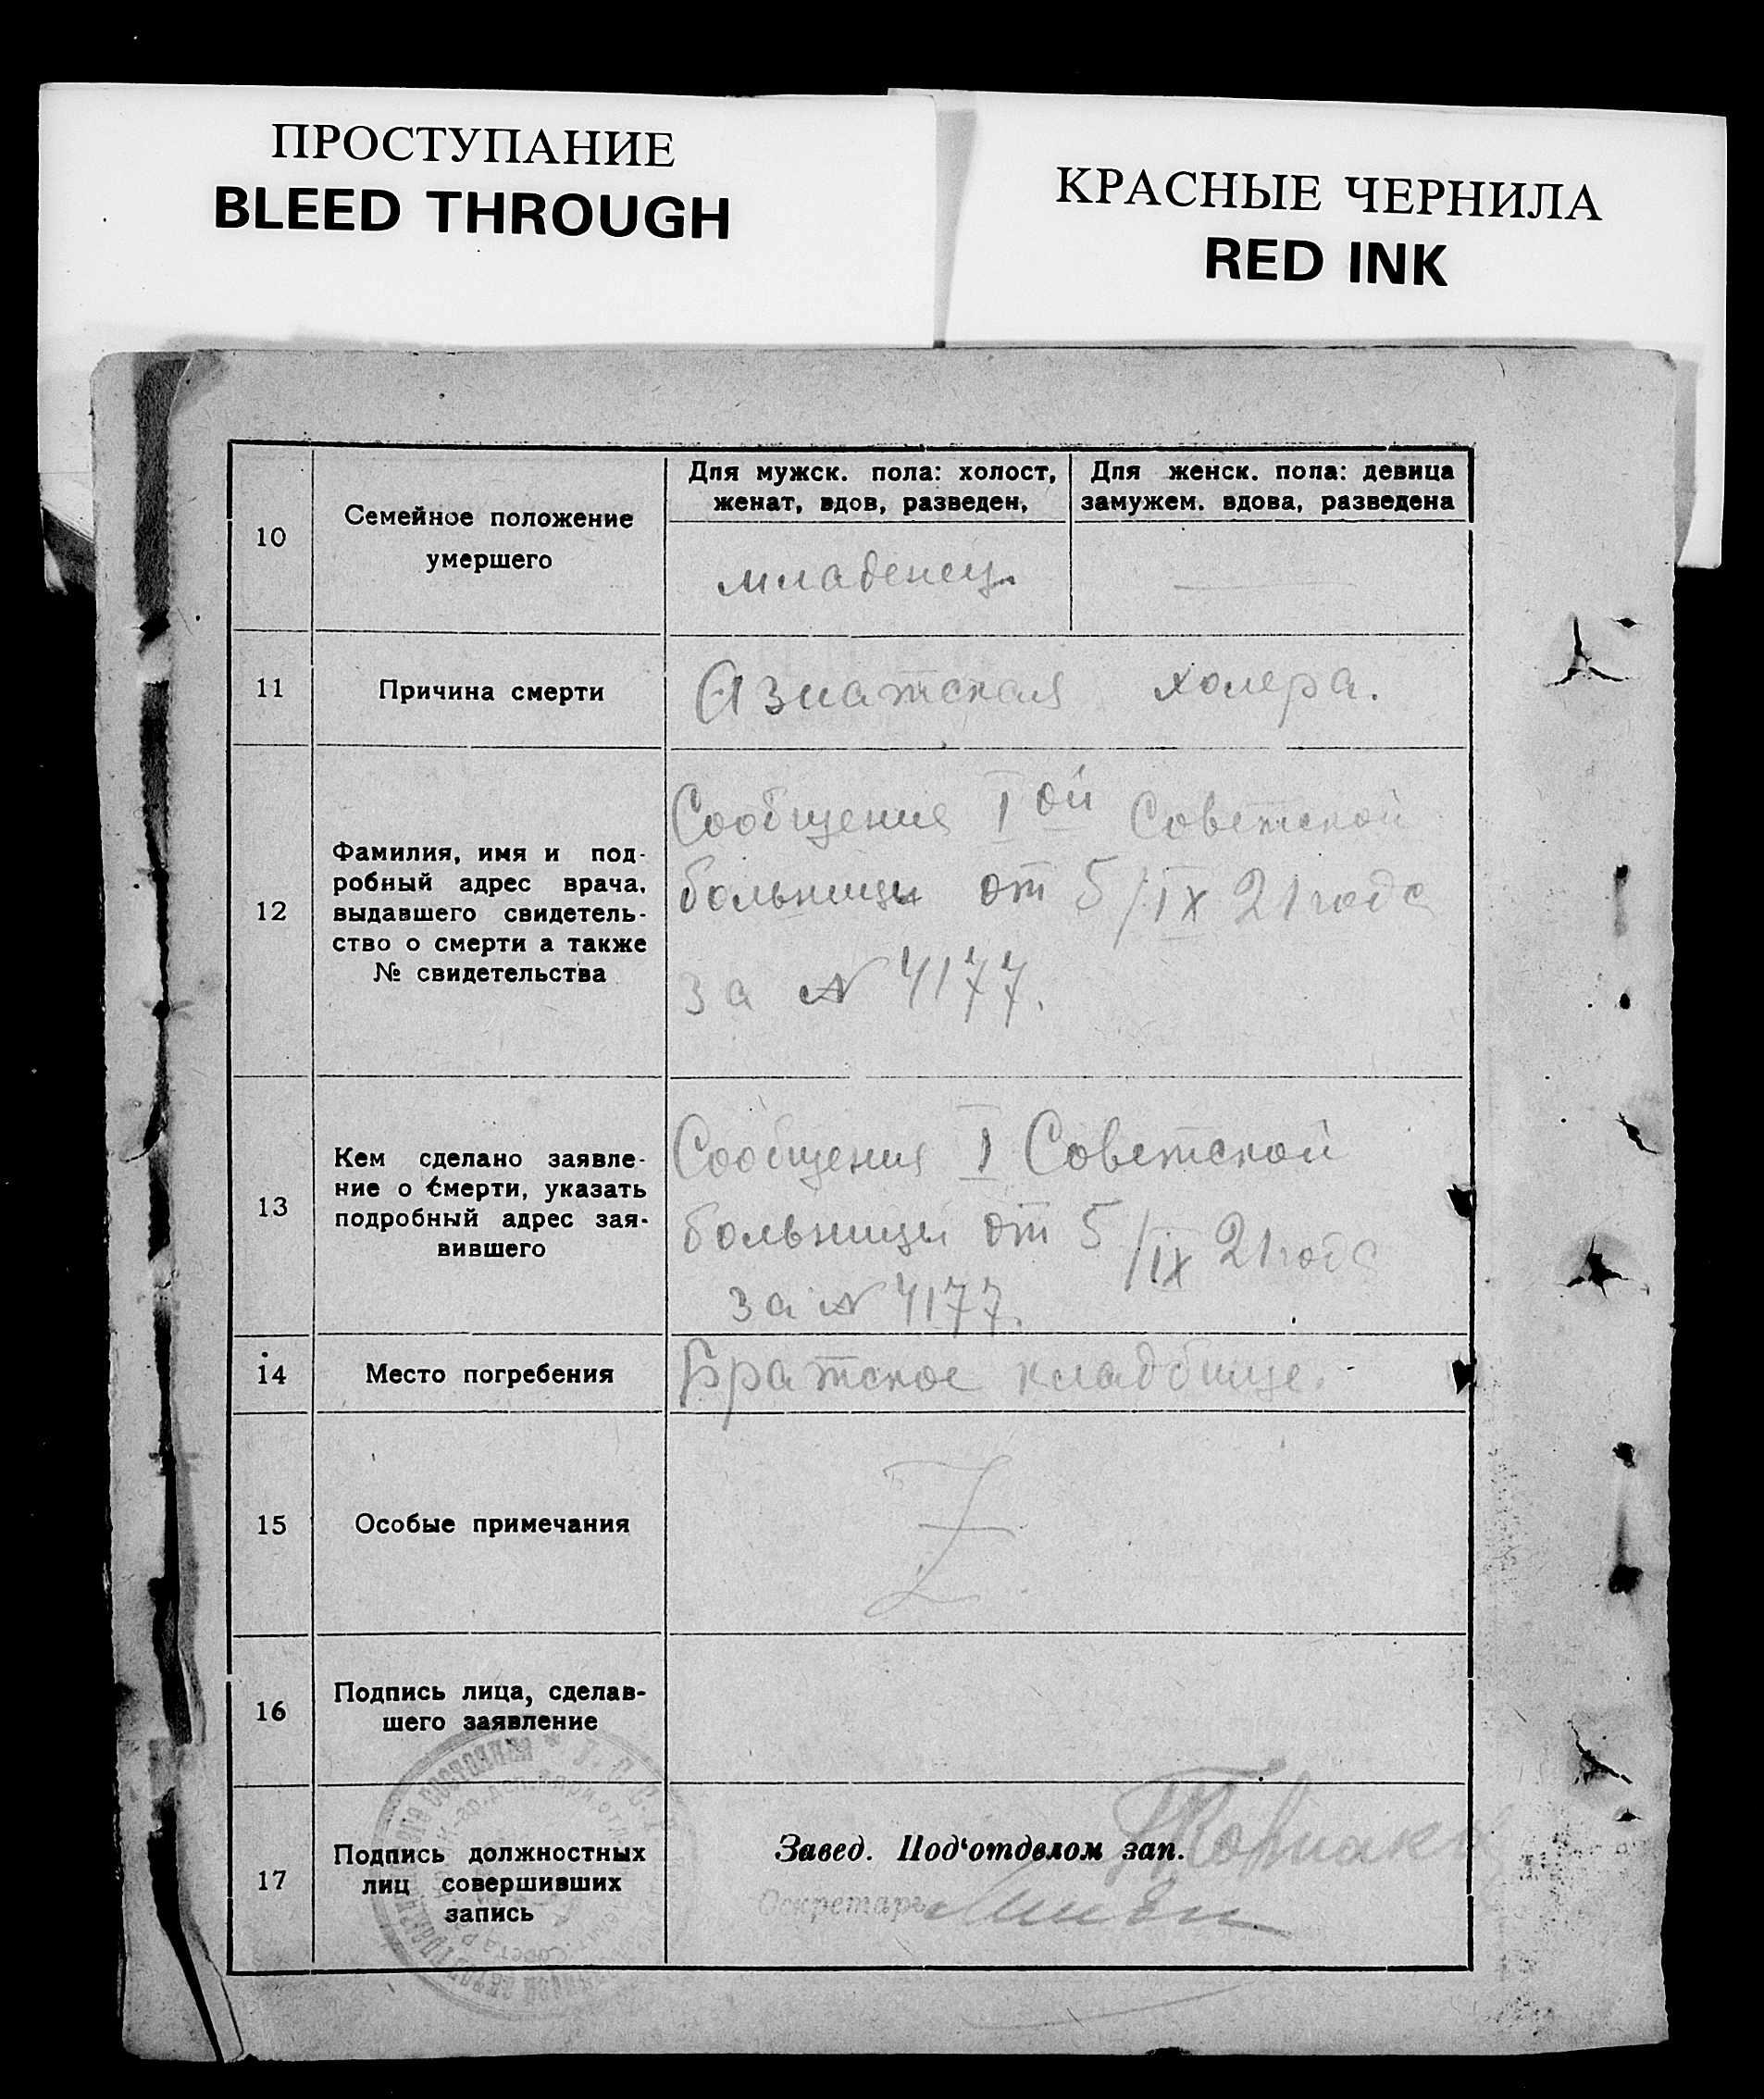 ПРОСТУПАНИЕ
BLEED THROUGH
КРАСНЫЕ ЧЕРНИЛА
RED INK
10
Семейное положение
умершего
Для мужск. пола: холост,
женат, вдов, разведен,
Для женск. пола: девица
замужем. вдова, разведена
младенец.
11
Причина смерти
Азиатская холера.
12
Фамилия, имя и под-
робный адрес врача,
выдавшего свидетель-
ство о смерти а также
№ свидетельства
Сообщения Iой Советской
больницы от 5/IX 21 года
за № 4177.
13
Кем сделано заявле-
ние о смерти, указать
подробный адрес зая-
вившего
Сообщения I Советской
больницы от 5/IX 21 года
за № 4177.
14
Место погребения
Братское кладбище.
15
Особые примечания
Z
16
Подпись лица, сделав-
шего заявление
17
Подпись должностных
лиц совершивших
запись
Завед. Под‘отделом зап.
Секретарь